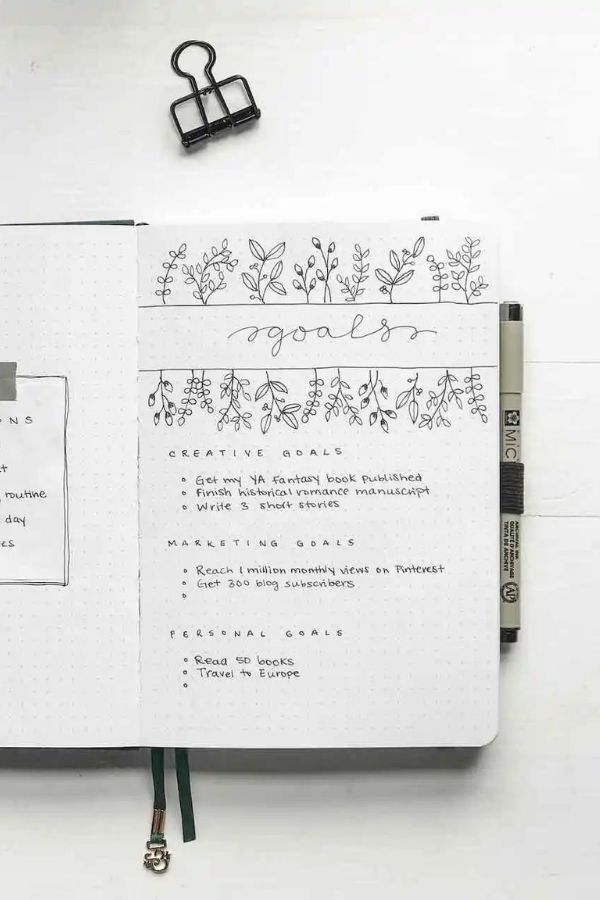 ONS
t
routine
day
es
goals
CREATIVE GOALS
Get my YA Fantasy book published
Finish historical romance manuscript
Write 3 short stories
MARKETING GOALS
Reach 1 million monthly views on Pinterest
Get 300 blog subscribers
PERSONAL GOALS
Read 50 books
Travel to Europe
MIC